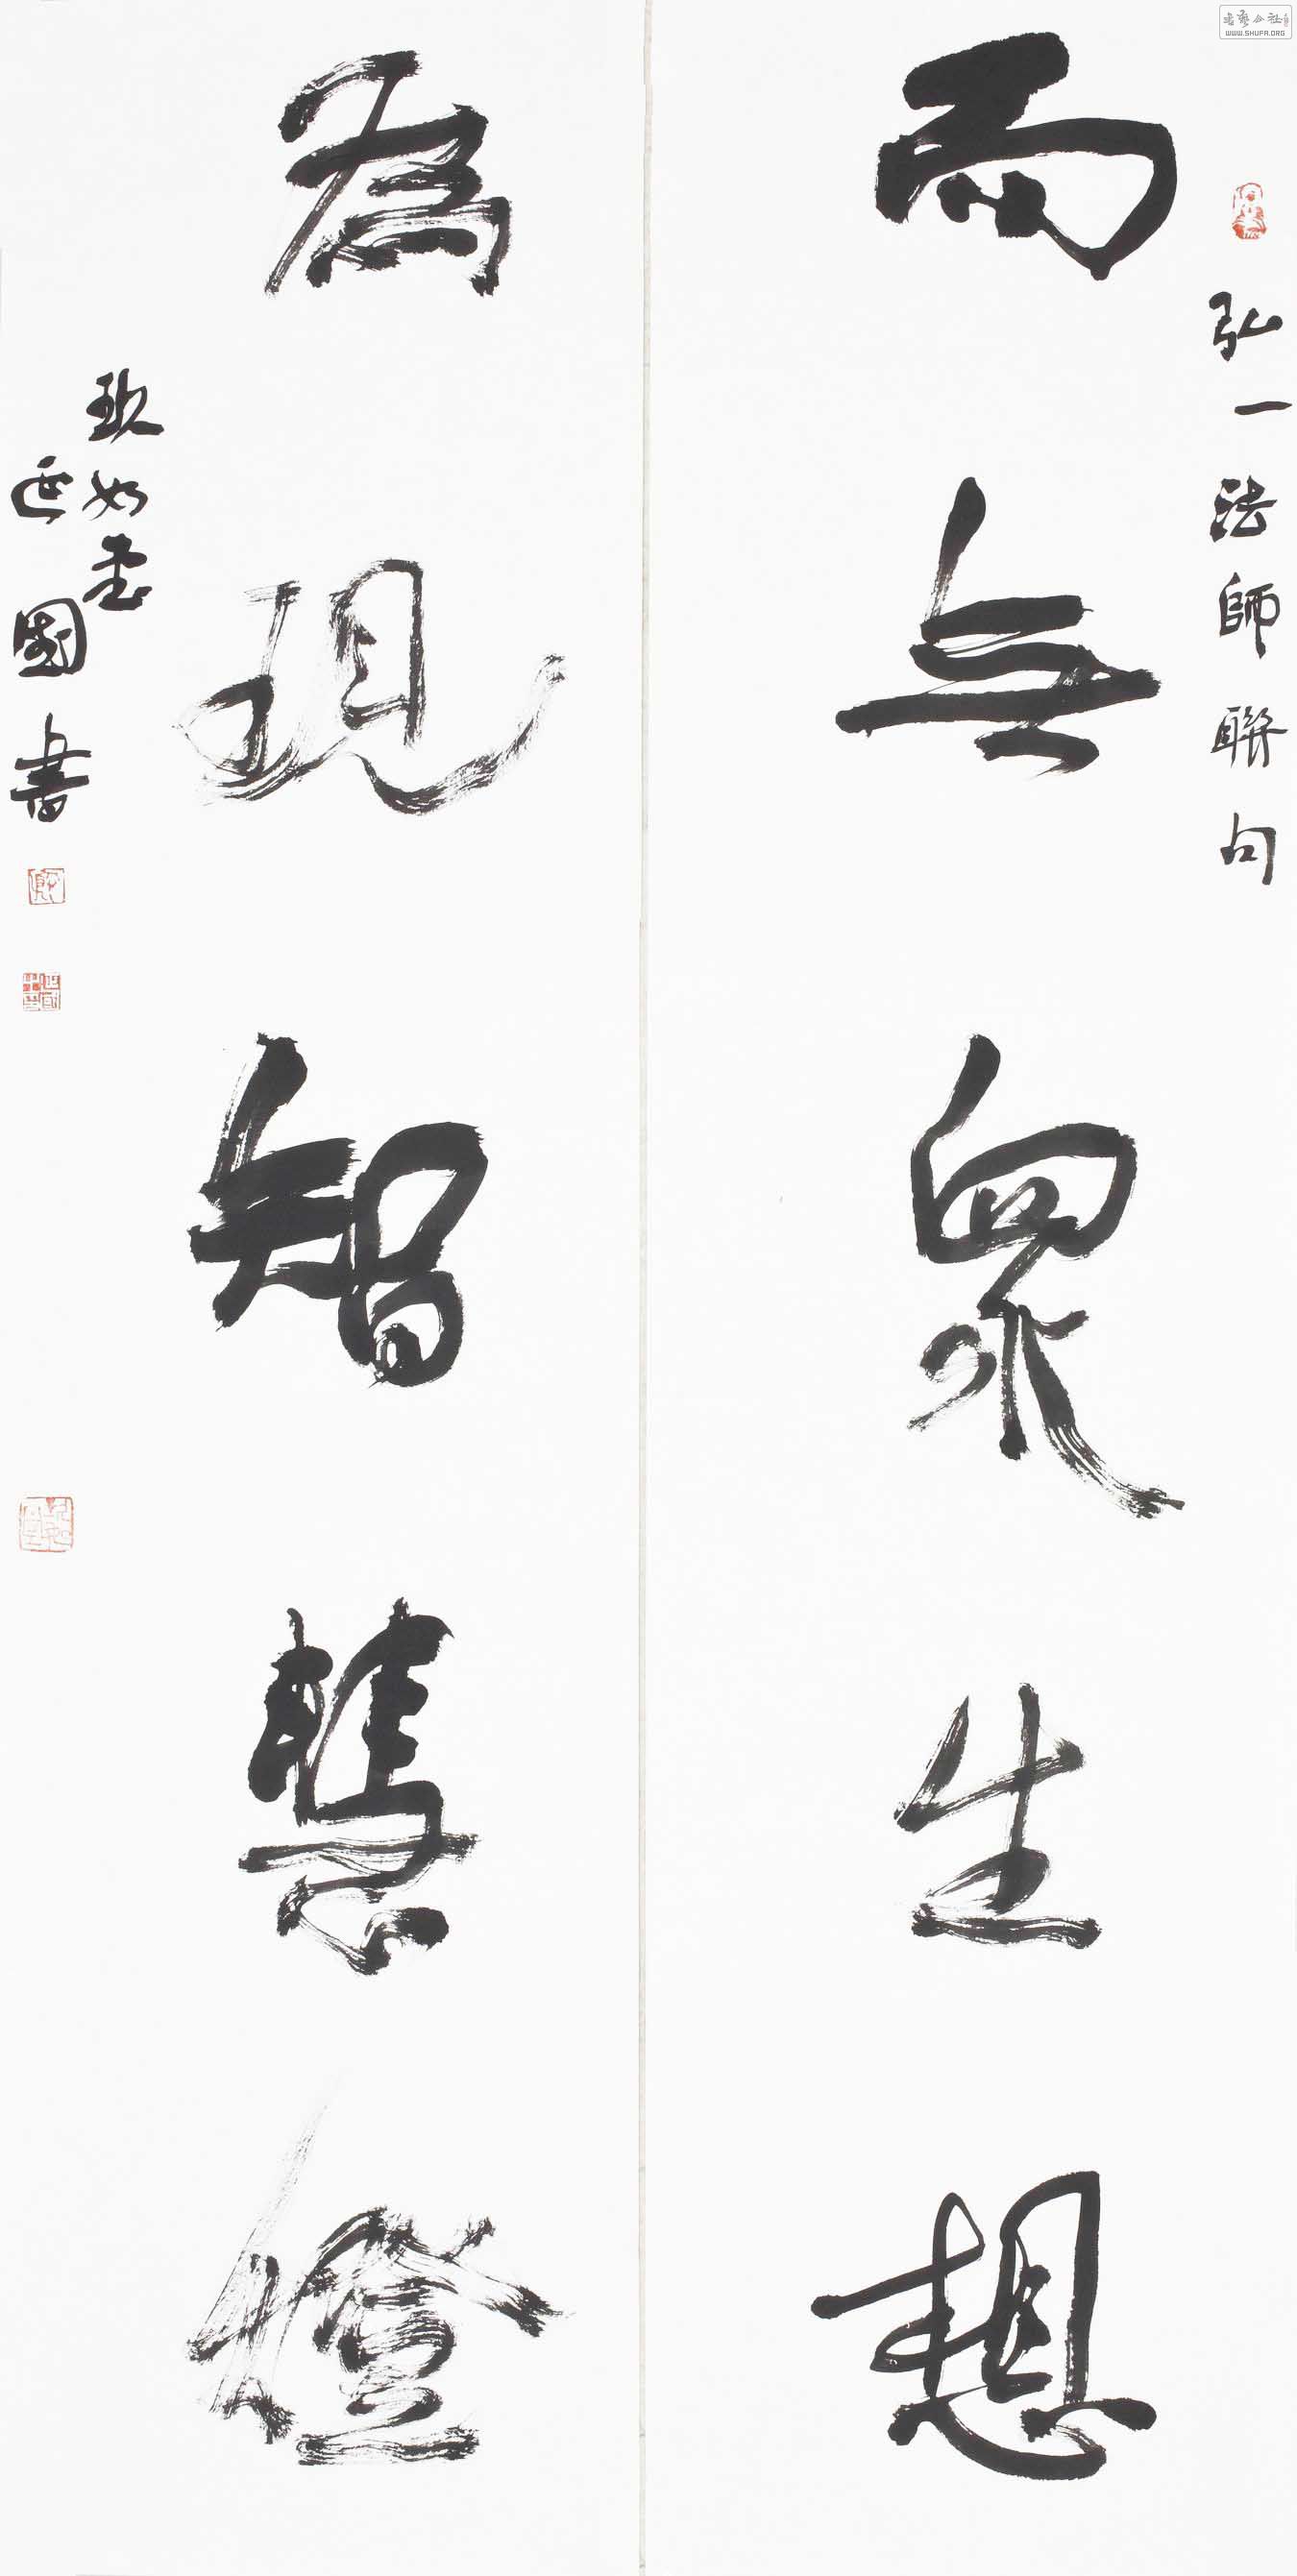 而無眾生想
弘一法師聯句
為現智慧燈
玩如堂
延國書
書藝公社
WWW.SHUFA.ORG